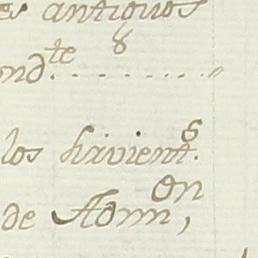 es antiguos
ond.te 8
los havient.s
de Admi,on